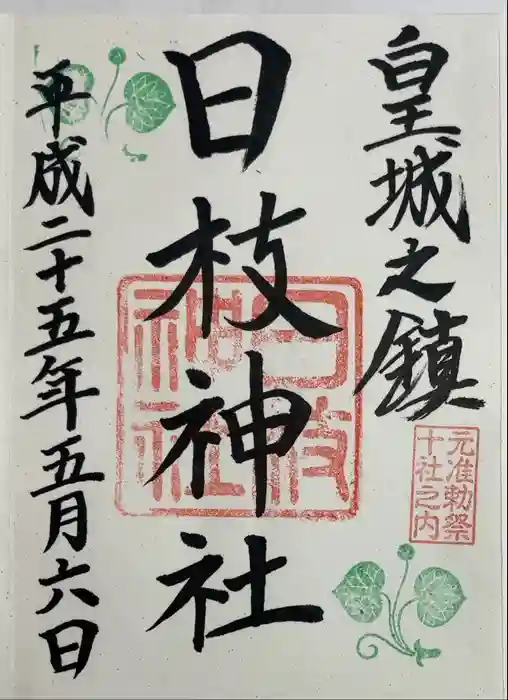 皇城之鎮
元准勅祭
十社之内
日枝神社
日枝
神社
平成二十五年五月六日